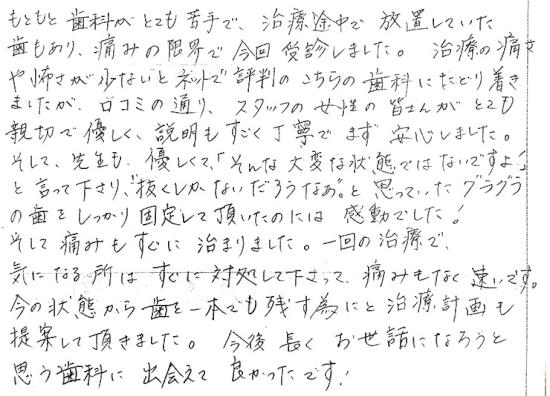 もともと歯科がとても苦手で、治療途中で放置していた
歯もあり、痛みの限界で今回受診しました。 治療の痛さ
や怖さが少ないとネットで評判のこちらの歯科にたどり着き
ましたが、口コミの通り、スタッフの女性の皆さんがとても
親切で優しく、説明もすごく丁寧でまず安心しました。
そして、先生も、優しくて、「そんな大変な状態ではないですよ!」
と言って下さり、"抜くしかないだろうなあ"と思っていたグラグラ
の歯をしっかり固定して頂いたのには感動でした!
そして痛みもすぐに治まりました。一回の治療で、
気になる所はすぐに対処して下さって、痛みもなく速いです。
今の状態から歯を一本でも残す為にと治療計画も
提案して頂きました。 今後長くお世話になろうと
思う歯科に出会えて良かったです!